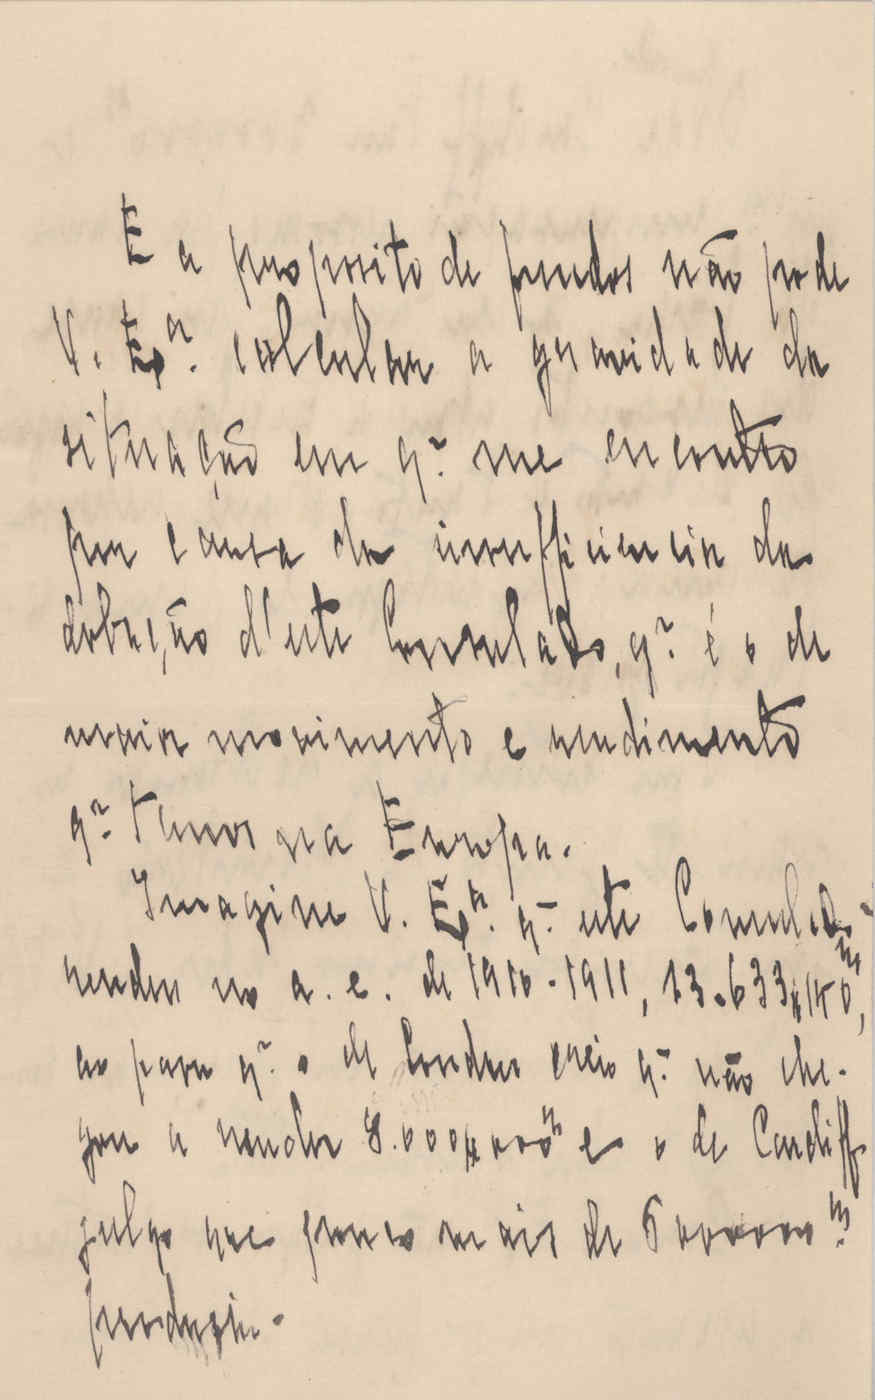 E a proposito de fundos não pode
V. Exª. calcular a gravidade da
situação em q.e me encontro
por causa da insufficiencia da
dotação d'este Consulado, q.e é o de
maior movimento e rendimento
q.e temos na Europa.
Imagine V. Exª. q.e este Consulado
rendeu no a. e. de 1910-1911, 13.633$140rs,
ao passo q.e o de Londres creio q.e não che-
gou a render 8.000$000rs e o de Cardiff
julgo que pouco mais de 6 000000rs
produziu.